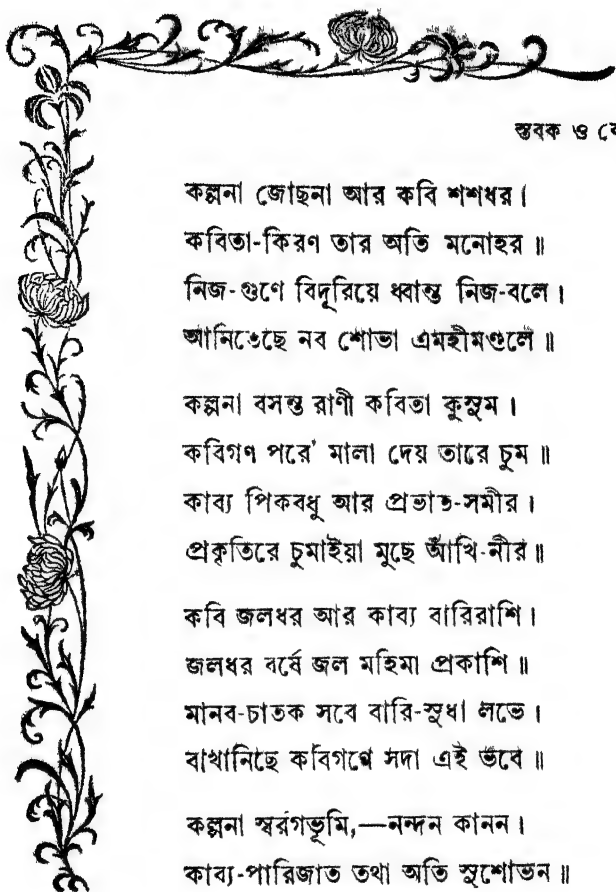 স্তবক ও
কল্পনা জোছনা আর কবি শশধর।
কবিতা-কিরণ তার অতি মনোহর॥
নিজ-গুণে বিদূরিয়ে ধ্বান্ত নিজ-বলে।
আনিতেছে নব শোভা এমহীমণ্ডলে॥
কল্পনা বসন্ত রাণী কবিতা কুসুম।
কবিগণ পরে' মালা দেয় তারে চুম॥
কাব্য পিকবধু আর প্রভাত-সমীর।
প্রকৃতিরে চুমাইয়া মুছে আঁখি-নীর॥
কবি জলধর আর কাব্য বারিরাশি।
জলধর বর্ষে জল মহিমা প্রকাশি॥
মানব-চাতক সবে বারি-সুধা লভে।
বাখানিছে কবিগণে সদা এই ভবে॥
কল্পনা স্বরগভূমি,—নন্দন কানন।
কাব্য-পারিজাত তথা অতি সুশোভন॥